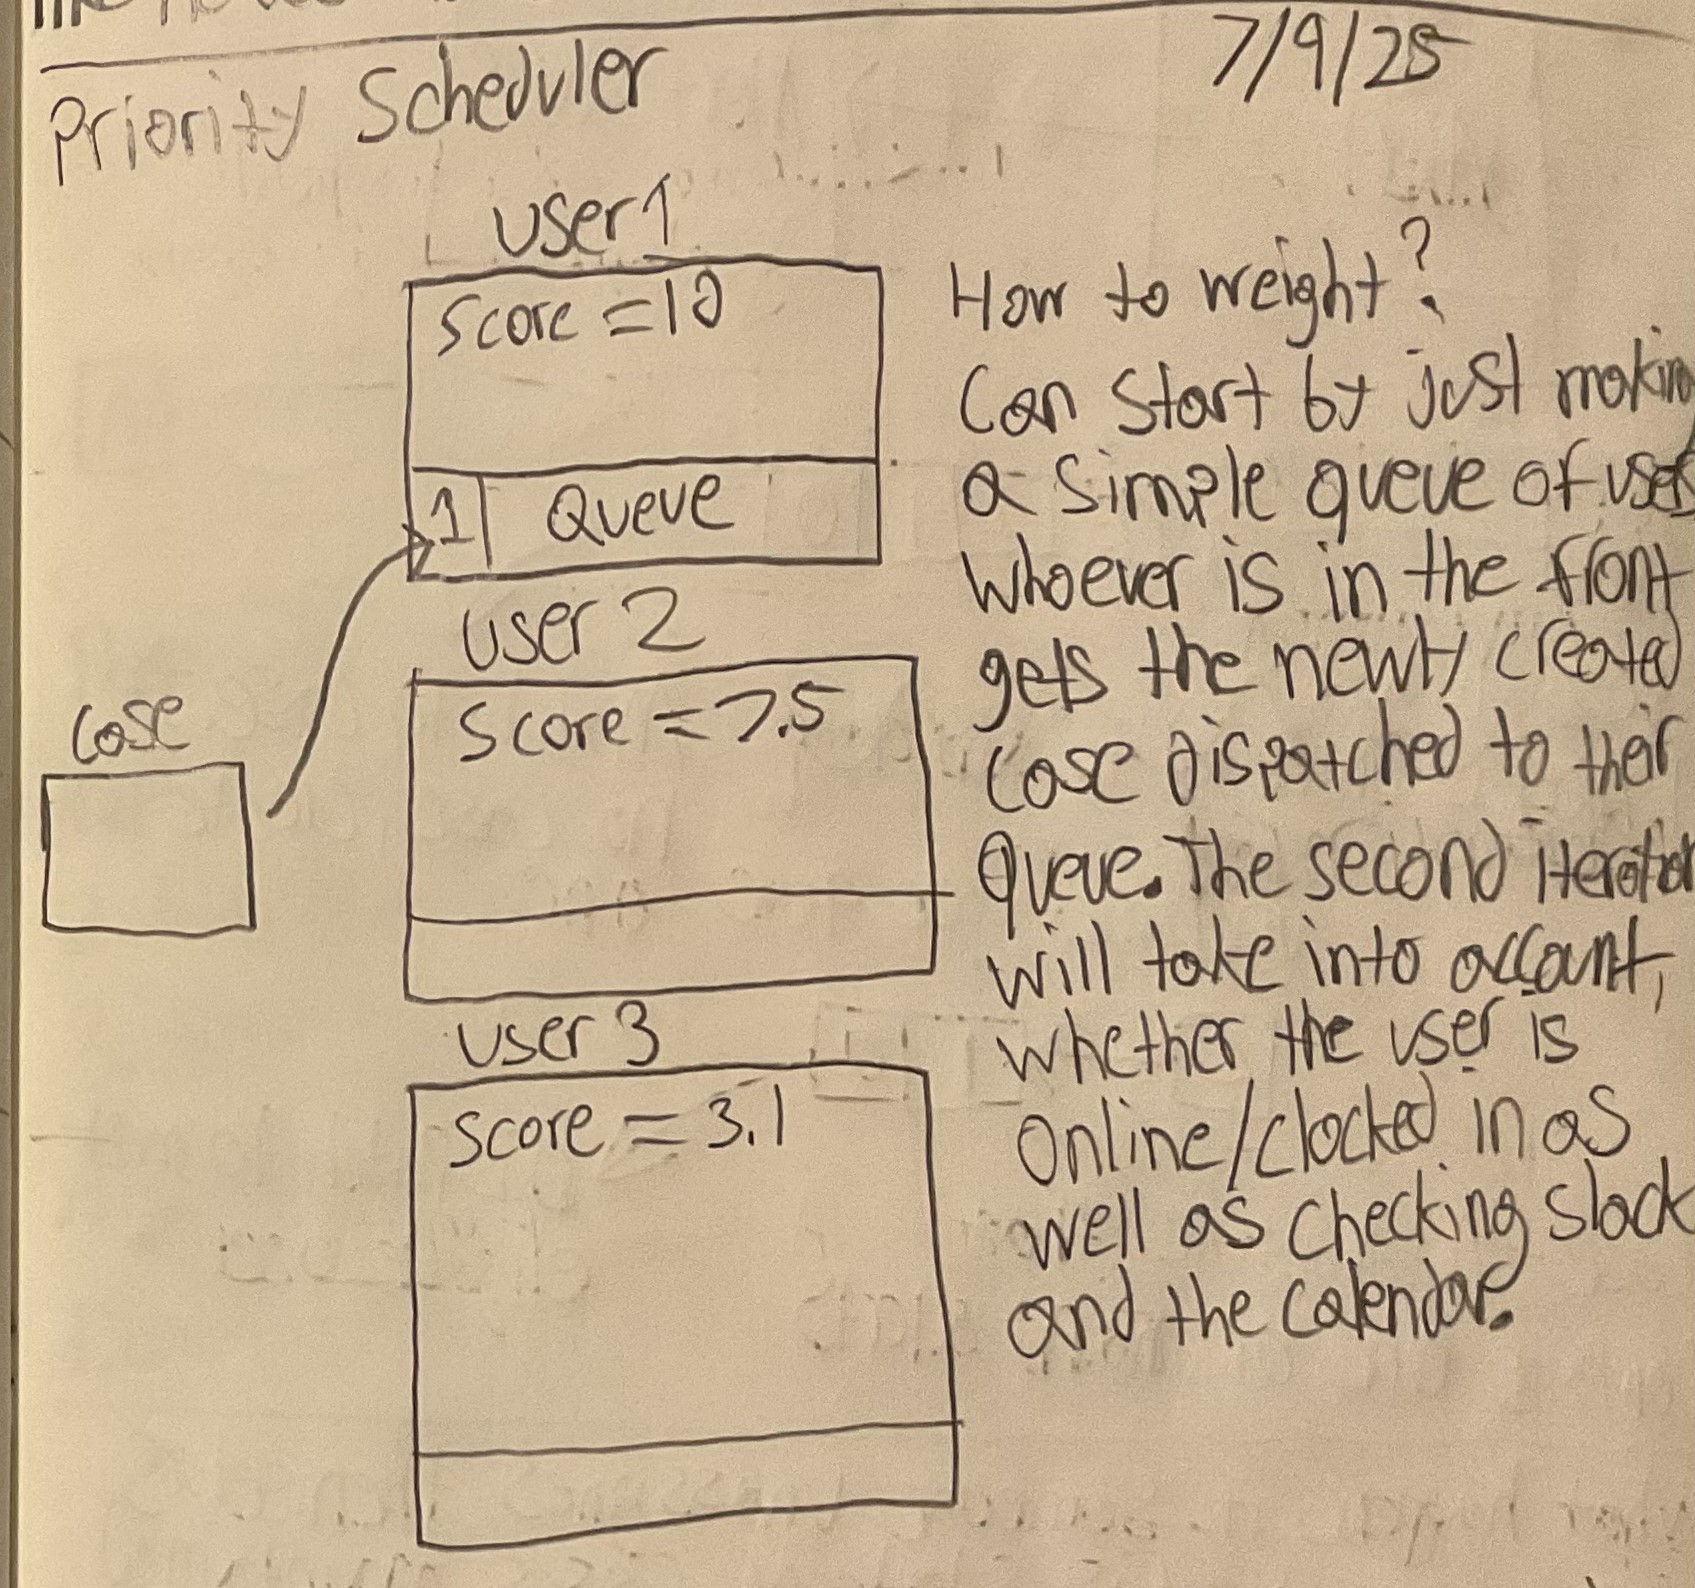 Priority Scheduler
7/9/25
user 1
Score = 10
1 Queue
user 2
Score = 7.5
case
user 3
Score = 3.1
How to weight?
Can start by just making
a simple queue of users
whoever is in the front
gets the newly created
case dispatched to their
Queue. The second iteration
will take into account,
whether the user is
Online/clocked in as
well as checking slack
and the calendar.